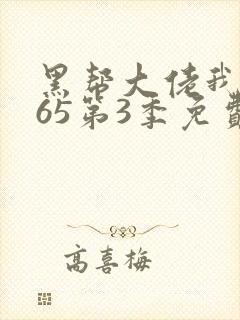 黑帮大佬我
65第3季免費
高喜梅